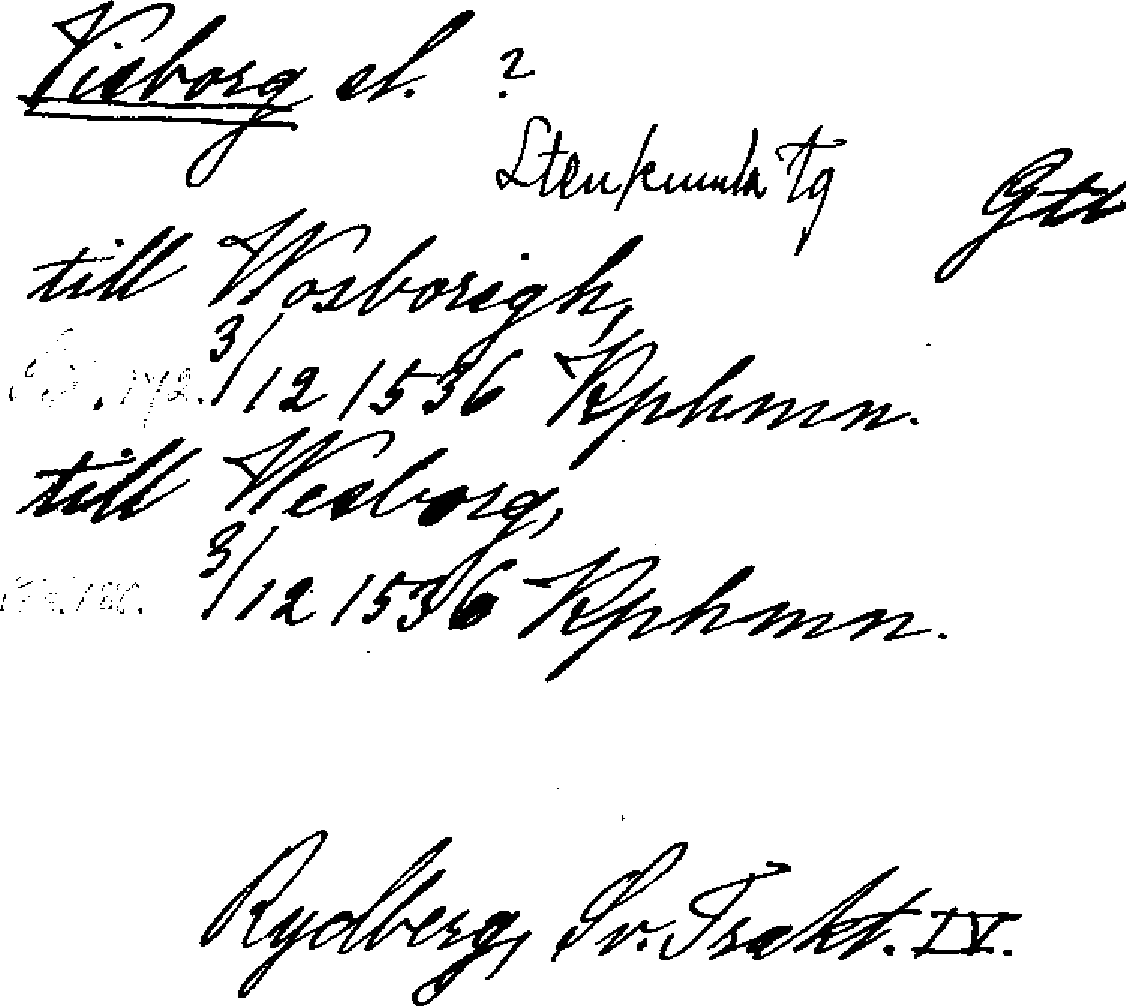 Visborg sl. ?
Stenkumla Tg Gtl
till Wosborigh,
3/12 1536 Kphmn.
till Wesborg,
3/12 1536 Kphmn.
Rydberg, Sv. Trakt. IV.